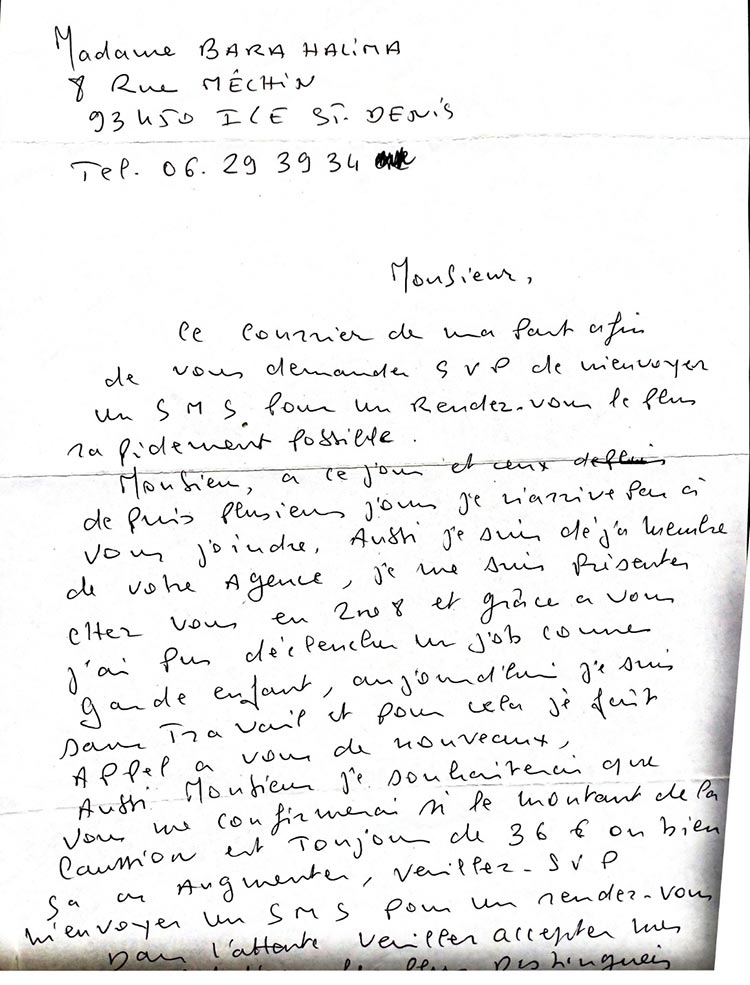 Madame BARA HALiMA
8 Rue MÉCHiN
93450 ILE ST. DENiS
Tel. 06. 29 39 34
Monsieur,
Ce Courrier de ma part afin
de vous demander SVP de m'envoyer
un SMS pour un Rendez-vous le plus
rapidement possible.
Monsieur, a ce jour et ceux depuis
depuis plusieurs jours je n'arrive pas à
vous joindre. Aussi je suis déjà membre
de votre Agence, je me suis présenter
CHez vous en 2008 et grâce a vous
j'ai pus déclencher un job comme
garde enfant, aujourd'hui je suis
sans Travail et pour cela je fait
APPel a vous de nouveaux,
Aussi Monsieur je souhaiterai que
vous me confirmerai si le montant de la
Caussion est Toujours de 36 € ou bien
Sa a Augmenter, veuillez-SVP
m'envoyer un SMS pour un rendez-vous
Dans l'attente veuiller accepter mes
le plus Distingueis